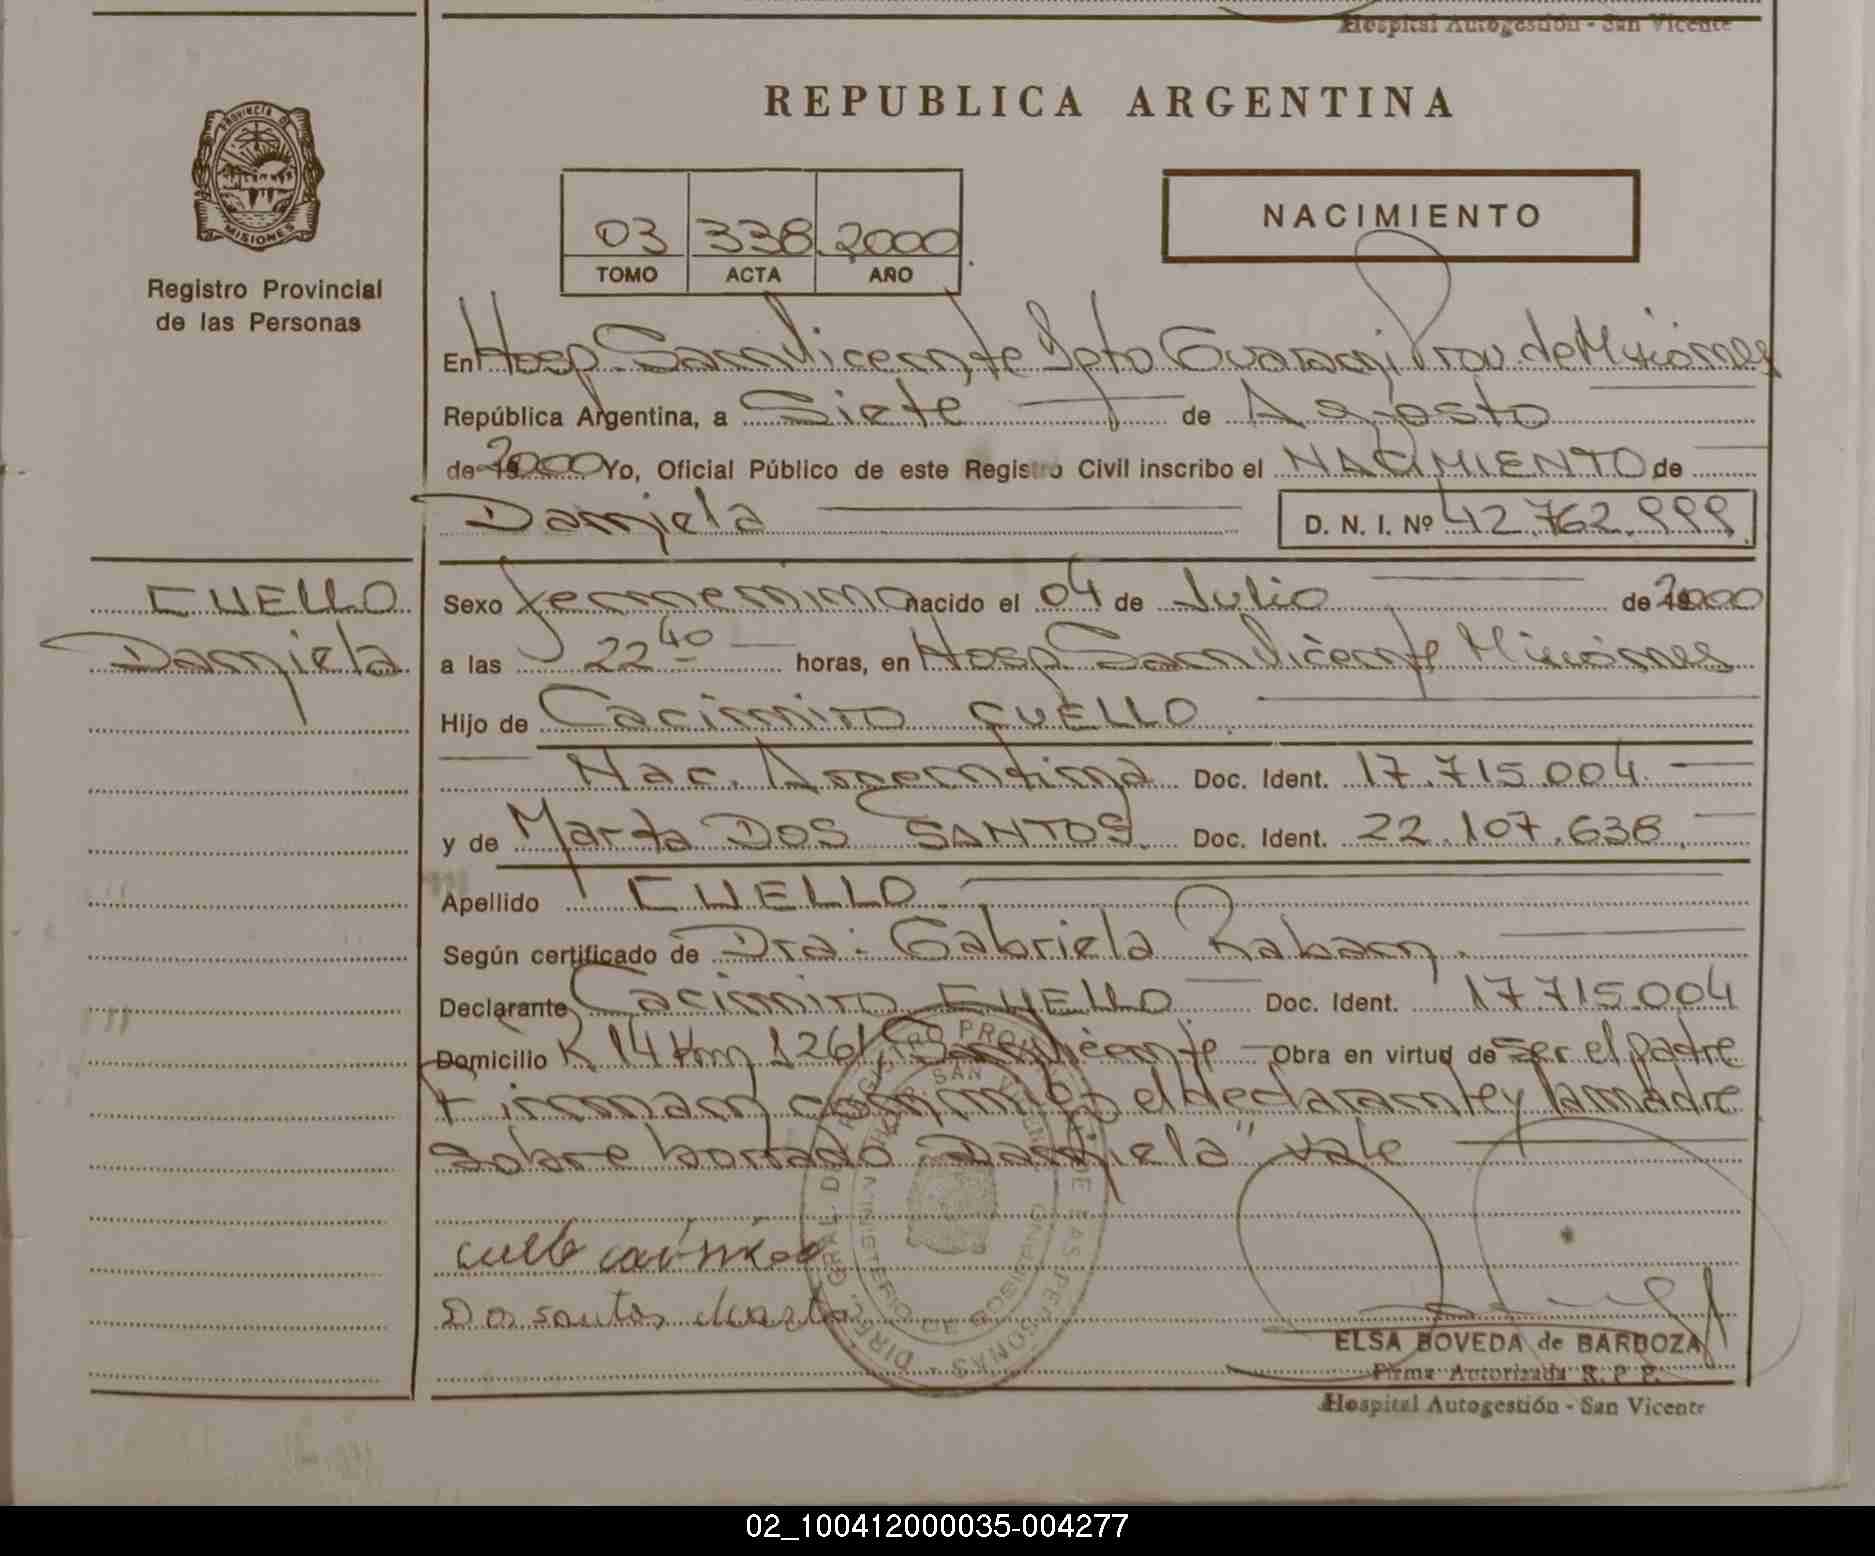 Hospital Autogestión - San Vicente
REPUBLICA ARGENTINA
PROVINCIA DE MISIONES
Registro Provincial
de las Personas
NACIMIENTO
03 338 2000
TOMO ACTA AÑO
En Hosp. San Vicente Dpto Guarani Prov. de Misiones
República Argentina, a Siete de Agosto
de 2000 Yo, Oficial Público de este Registro Civil inscribo el NACIMIENTO de
Daniela D. N. I. Nº 42.762.999
CUELLO
Daniela
Sexo femenino nacido el 04 de Julio de 2000
a las 22 40 horas, en Hosp. San Vicente Misiones
Hijo de Cacimiro CUELLO
Nac. Argentina Doc. Ident. 17.715.004
y de Marta DOS SANTOS Doc. Ident. 22.107.638
Apellido CUELLO
Según certificado de Dra: Gabriela Raban
Declarante Cacimiro CUELLO Doc. Ident. 17 715.004
Domicilio R 14 Km 1261 San Vicente Obra en virtud de ser el padre
Firman conmigo el declarante y la madre
Sobre borrado "Daniela" vale
Dos santos Marta
ELSA BOVEDA de BARBOZA
Firma Autorizada R. P. P.
Hospital Autogestión - San Vicente
02_100412000035-004277